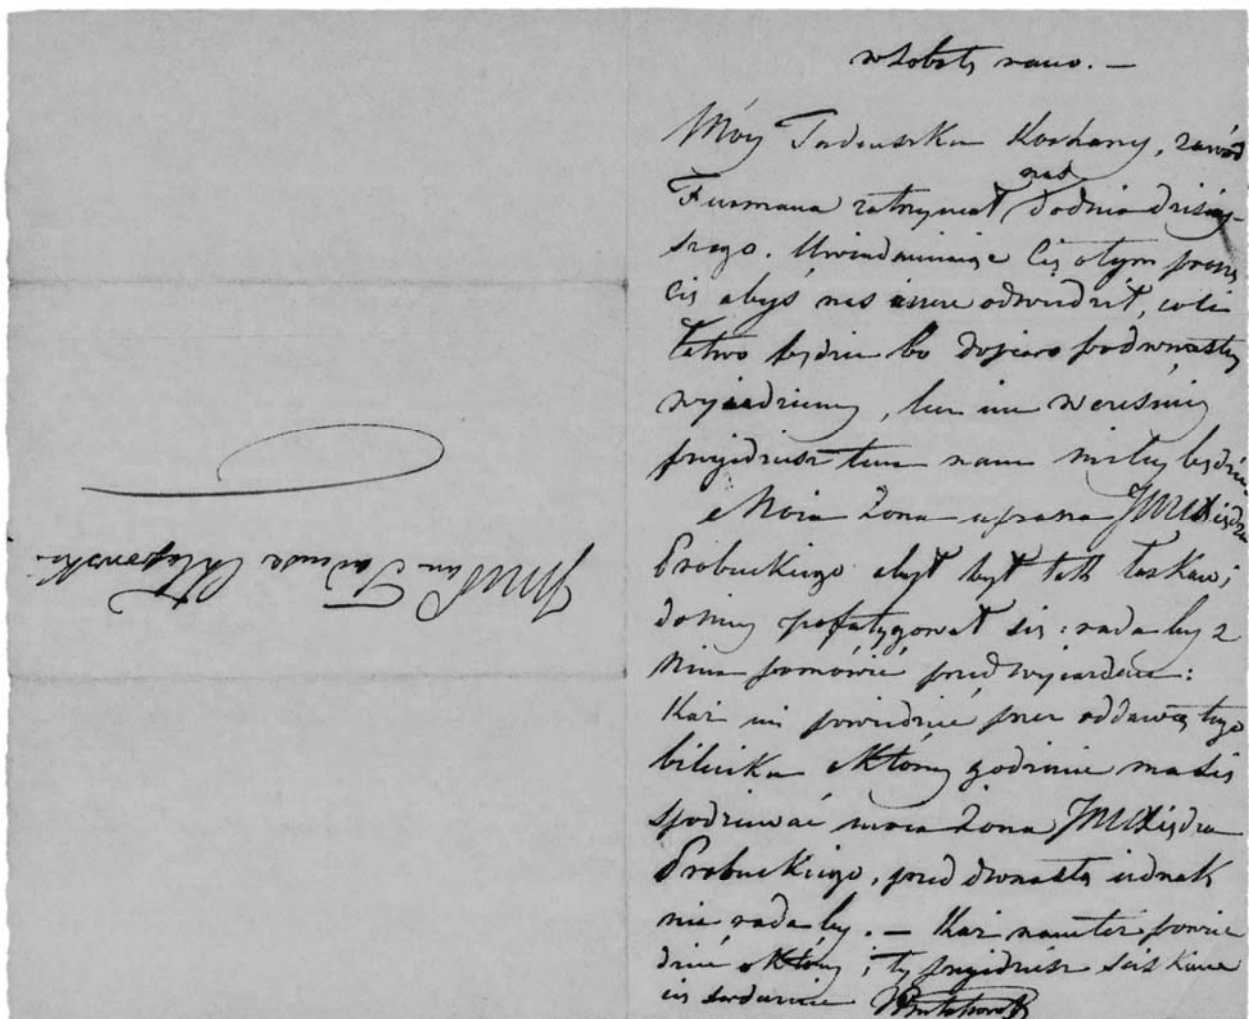 w Sobotę rano. —
Móy Tadeuszku Kochany, zawód
Furmana zatrzymał nas do dnia dzisiey-
szego. Uwiadamiaiąc Cię o tym proszę
Cię abyś nas ieszcze odwiedził, co Ci
łatwo będzie bo dopiero po dwunastey
wyiedziemy, im wcześniey
przyidziesz tem nam miley będzie
Moia Żona uprasza JMC Xiędza
Probuckiego abyś był tak łaskaw i
do niey pofatygował się: rada by z
Nim pomówić przed wyiazdem:
Każ mi powiedzieć przez oddawcę tego
bileciku o Którey godzinie ma się
spodziewać moia Żona JMC Xiędza
Probuckiego, przed dwunastą iednak
nie rada by. — Każ nam też powie
dzieć o Którey i ty przyidziesz ściskam
cię serdecznie
JMC Pan Tadeusz